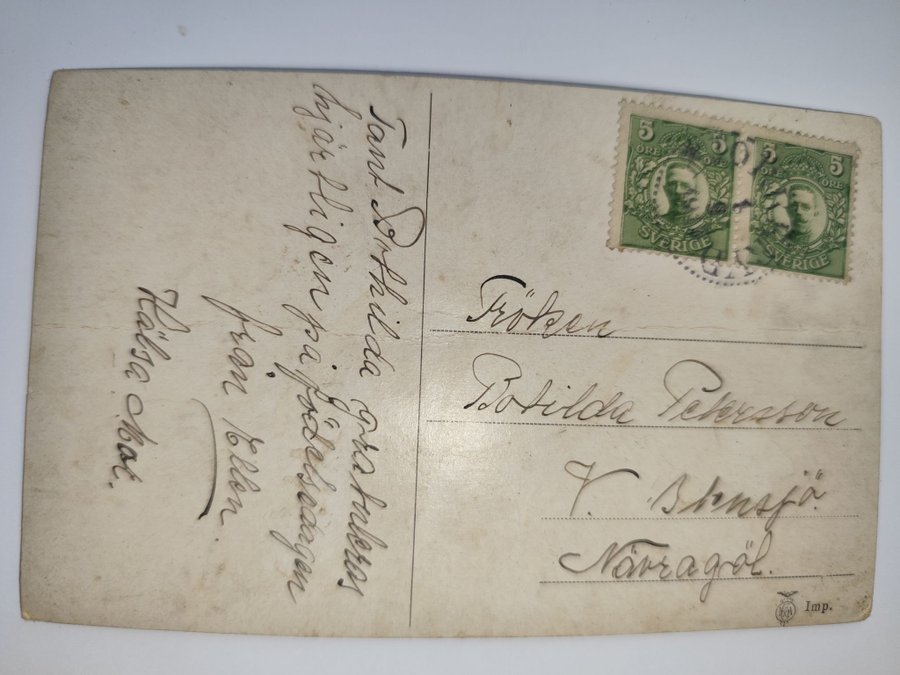 Tant Bothilda gratuleras
hjärtligen på födelsedagen
från Ellen.
Hälsa Mor.
5 5
ÖRE ÖRE
SVERIGE
5 5
ÖRE ÖRE
SVERIGE
Fröken
Botilda Petersson
V.
Nävragöl.
Imp.